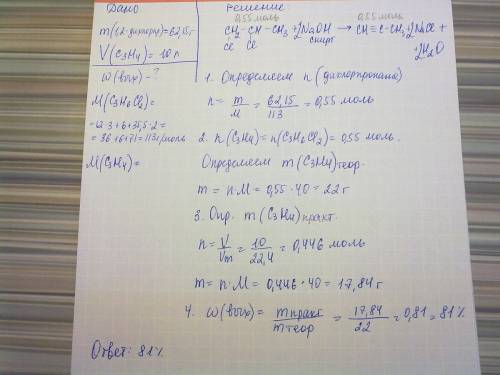 Дано
m(1,2-дихлорпр)=62,15г
V(C3H4) = 10 л
ω(вых) - ?
M(C3H6Cl2)=
=12·3+6+35,5·2=
=36+6+71=113г/моль
M(C3H4)=
Решение:
0,55 моль 0,55 моль
CH2-CH-CH3 + 2NaOH → CH≡C-CH3 + 2NaCl +
Cl Cl спирт +2H2O
1. Определяем n (дихлорпропана)
n = m/M = 62,15/113 = 0,55 моль
2. n(C3H4) = n(C3H6Cl2) = 0,55 моль.
Определяем m(C3H4)теор.
m = n·M = 0,55·40 = 22 г
3. Опр. m(C3H4)практ.
n = V/Vm = 10/22,4 = 0,446 моль
m = n·M = 0,446·40 = 17,84 г
4. ω(вых) = mпракт/mтеор = 17,84/22 = 0,81 = 81%
Ответ: 81%